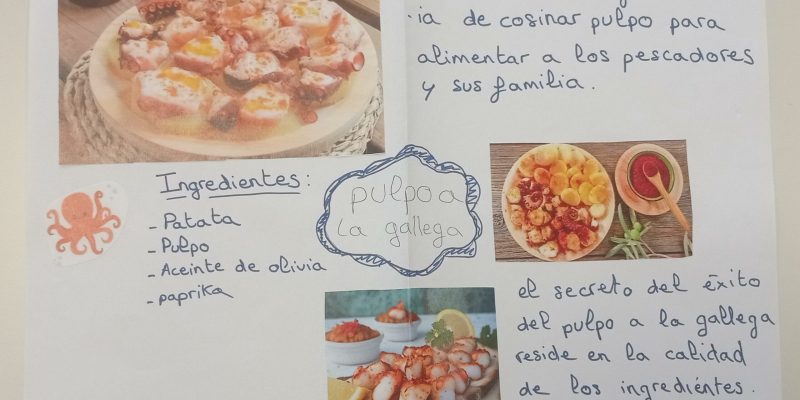 ia de cosinar pulpo para
alimentar a los pescadores
y sus familia.
Ingredientes:
- Patata
- Pulpo
- Aceinte de olivia
- paprika
pulpo a
la gallega
el secreto del éxito
del pulpo a la gallega
reside en la calidad
de los ingrediéntes.